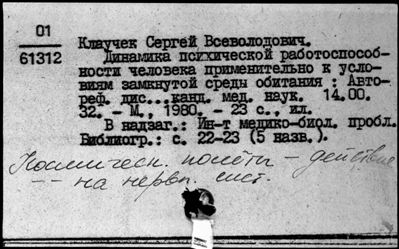 01
61312
Клаучек Сергей Всеволодович.
Динамика психической работоспособ-
ности человека применительно к усло-
виям замкнутой среды обитания : Авто-
реф. дис...канд. мед. наук. 14.00.
32. - М., 1980. - 23 с., ил.
В надзаг.: Ин-т медико-биол. пробл.
Библиогр.: с. 22-23 (5 назв.).
Космическ. полёты - действие
-- на нервн. сист.